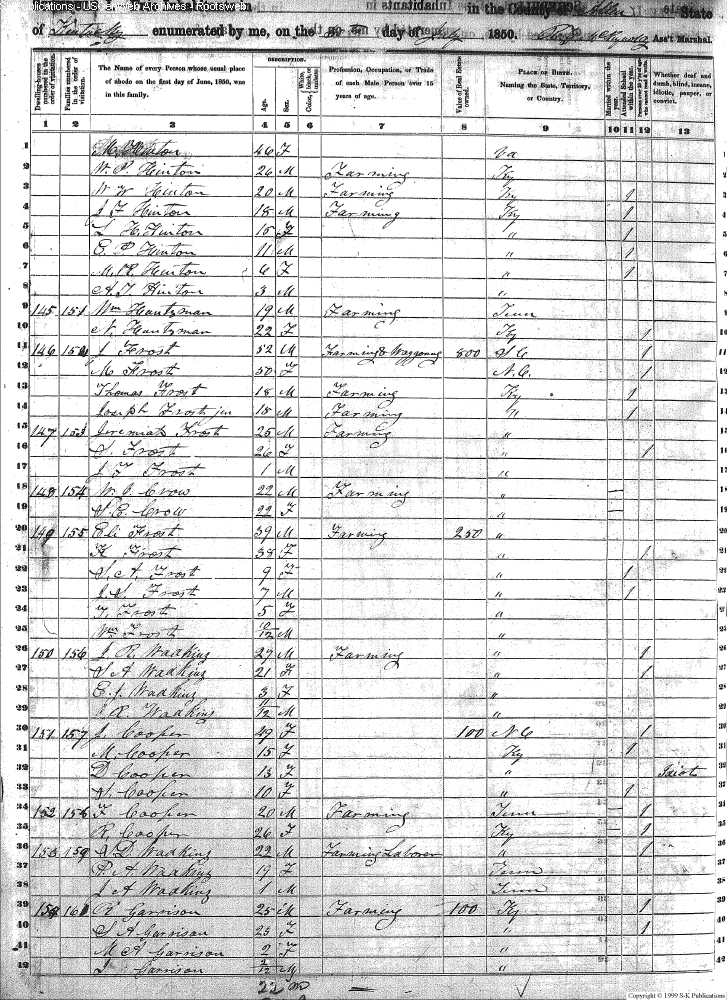 in the County State
of Kentucky enumerated by me, on the day of July 1850. Ass't Marshal.
Dwelling-houses numbered in the order of visitation.
Families numbered in the order of visitation.
The Name of every Person whose usual place of abode on the first day of June, 1850, was in this family.
DESCRIPTION.
Age.
Sex.
Profession, Occupation, or Trade of each Male Person over 15 years of age.
Value of Real Estate owned.
PLACE OF BIRTH. Naming the State, Territory, or Country.
Married within the year.
Attended School within the year.
Whether deaf and dumb, blind, insane, idiotic, pauper, or convict.
1 2 3 4 5 6 7 8 9 10 11 12 13
1 Hinton 46 F Va
2 W. P. Hinton 26 M Farming Ky
3 W W Hinton 20 M Farming Ky 1
4 J F Hinton 18 M Farming Ky 1
5 L H. Hinton 15 F " 1
6 E. P. Hinton 11 M " 1
7 M. R. Hinton 6 F " 1
8 A J Hinton 3 M "
9 145 151 Wm Huntzman 19 M Farming Tenn
10 N. Huntzman 22 F Ky 1
11 146 J Frost 52 M Farming & Waggoning 800 S C 1
12 M Frost 50 F N. C. 1
13 Thomas Frost 18 M Farming Ky 1
14 Joseph Frost jun 15 M Farming " 1
15 147 153 Jeremiah Frost 25 M Farming "
16 S. Frost 26 F " 1
17 J F Frost 1 M "
18 148 154 W. J. Crow 22 M Farming "
19 S. E. Crow 22 F "
20 149 155 Eli Frost 39 M Farming 250 "
21 K Frost 38 F " 1
22 S. A. Frost 9 F " 1
23 J. S. Frost 7 M " 1
24 F. Frost 5 F "
25 Wm Frost 10/12 M "
26 150 156 J R. Wadking 27 M Farming " 1
27 S A Wadking 21 F " 1
28 E. J. Wadking 3 F "
29 J. R. Wadking 11/12 M "
30 151 157 J. Cooper 49 F 100 N C 1
31 M. Cooper 15 F Ky 1
32 D Cooper 13 F " Idiot
33 S. Cooper 10 F " 1
34 152 158 F Cooper 20 M Farming Tenn 1
35 R. Cooper 26 F Ky 1
36 153 159 D. Wadking 22 M Farming Laborer " 1
37 P. A Wadking 19 F Tenn
38 J A Wadking 1 M Tenn
39 R Garrison 25 M Farming 100 Ky 1
40 S A Garrison 23 F " 1
41 M A Garrison 2 F "
42 J Garrison 2/12 M "
22 m
Copyright © 1999 S-K Publications